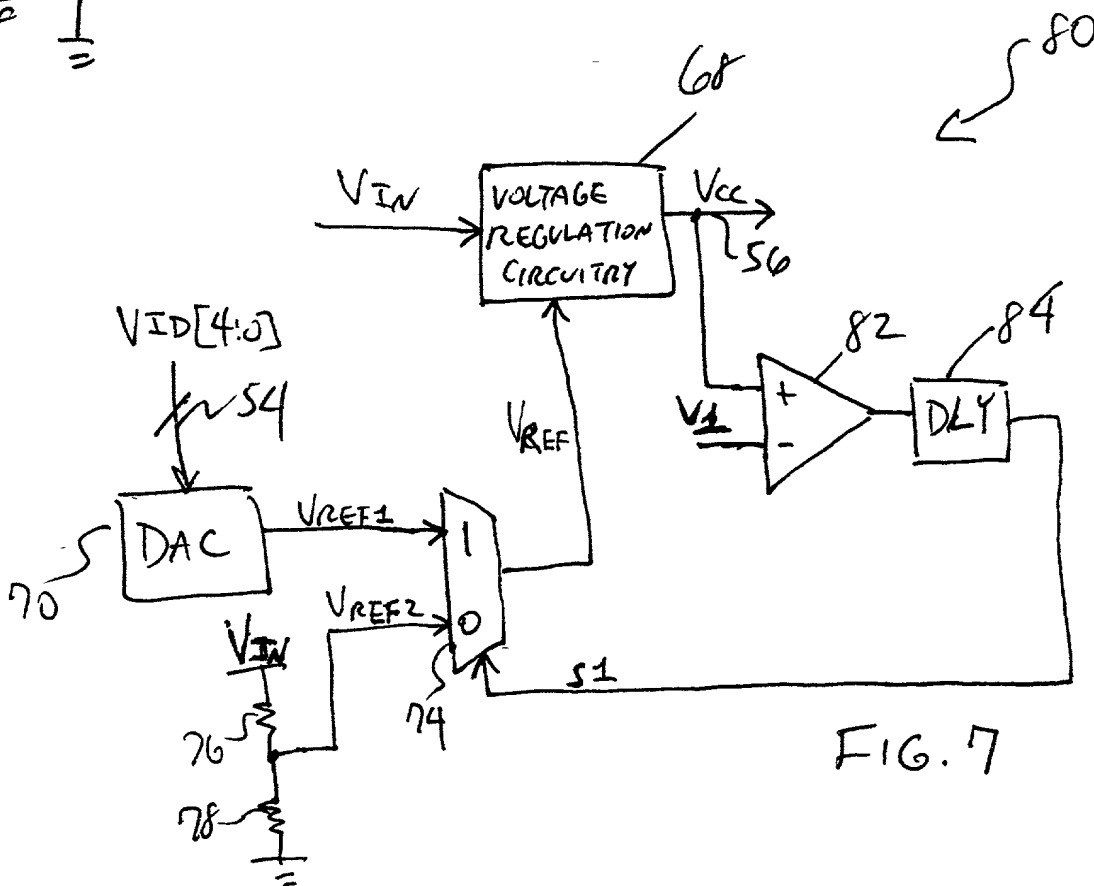 80
68
VIN
VOLTAGE
REGULATION
CIRCUITRY
Vcc
56
VID[4:0]
54
82
84
+
V1
-
DLY
VREF
VREF1
DAC
1
70
VREF2
0
VIN
S1
74
76
FIG. 7
78